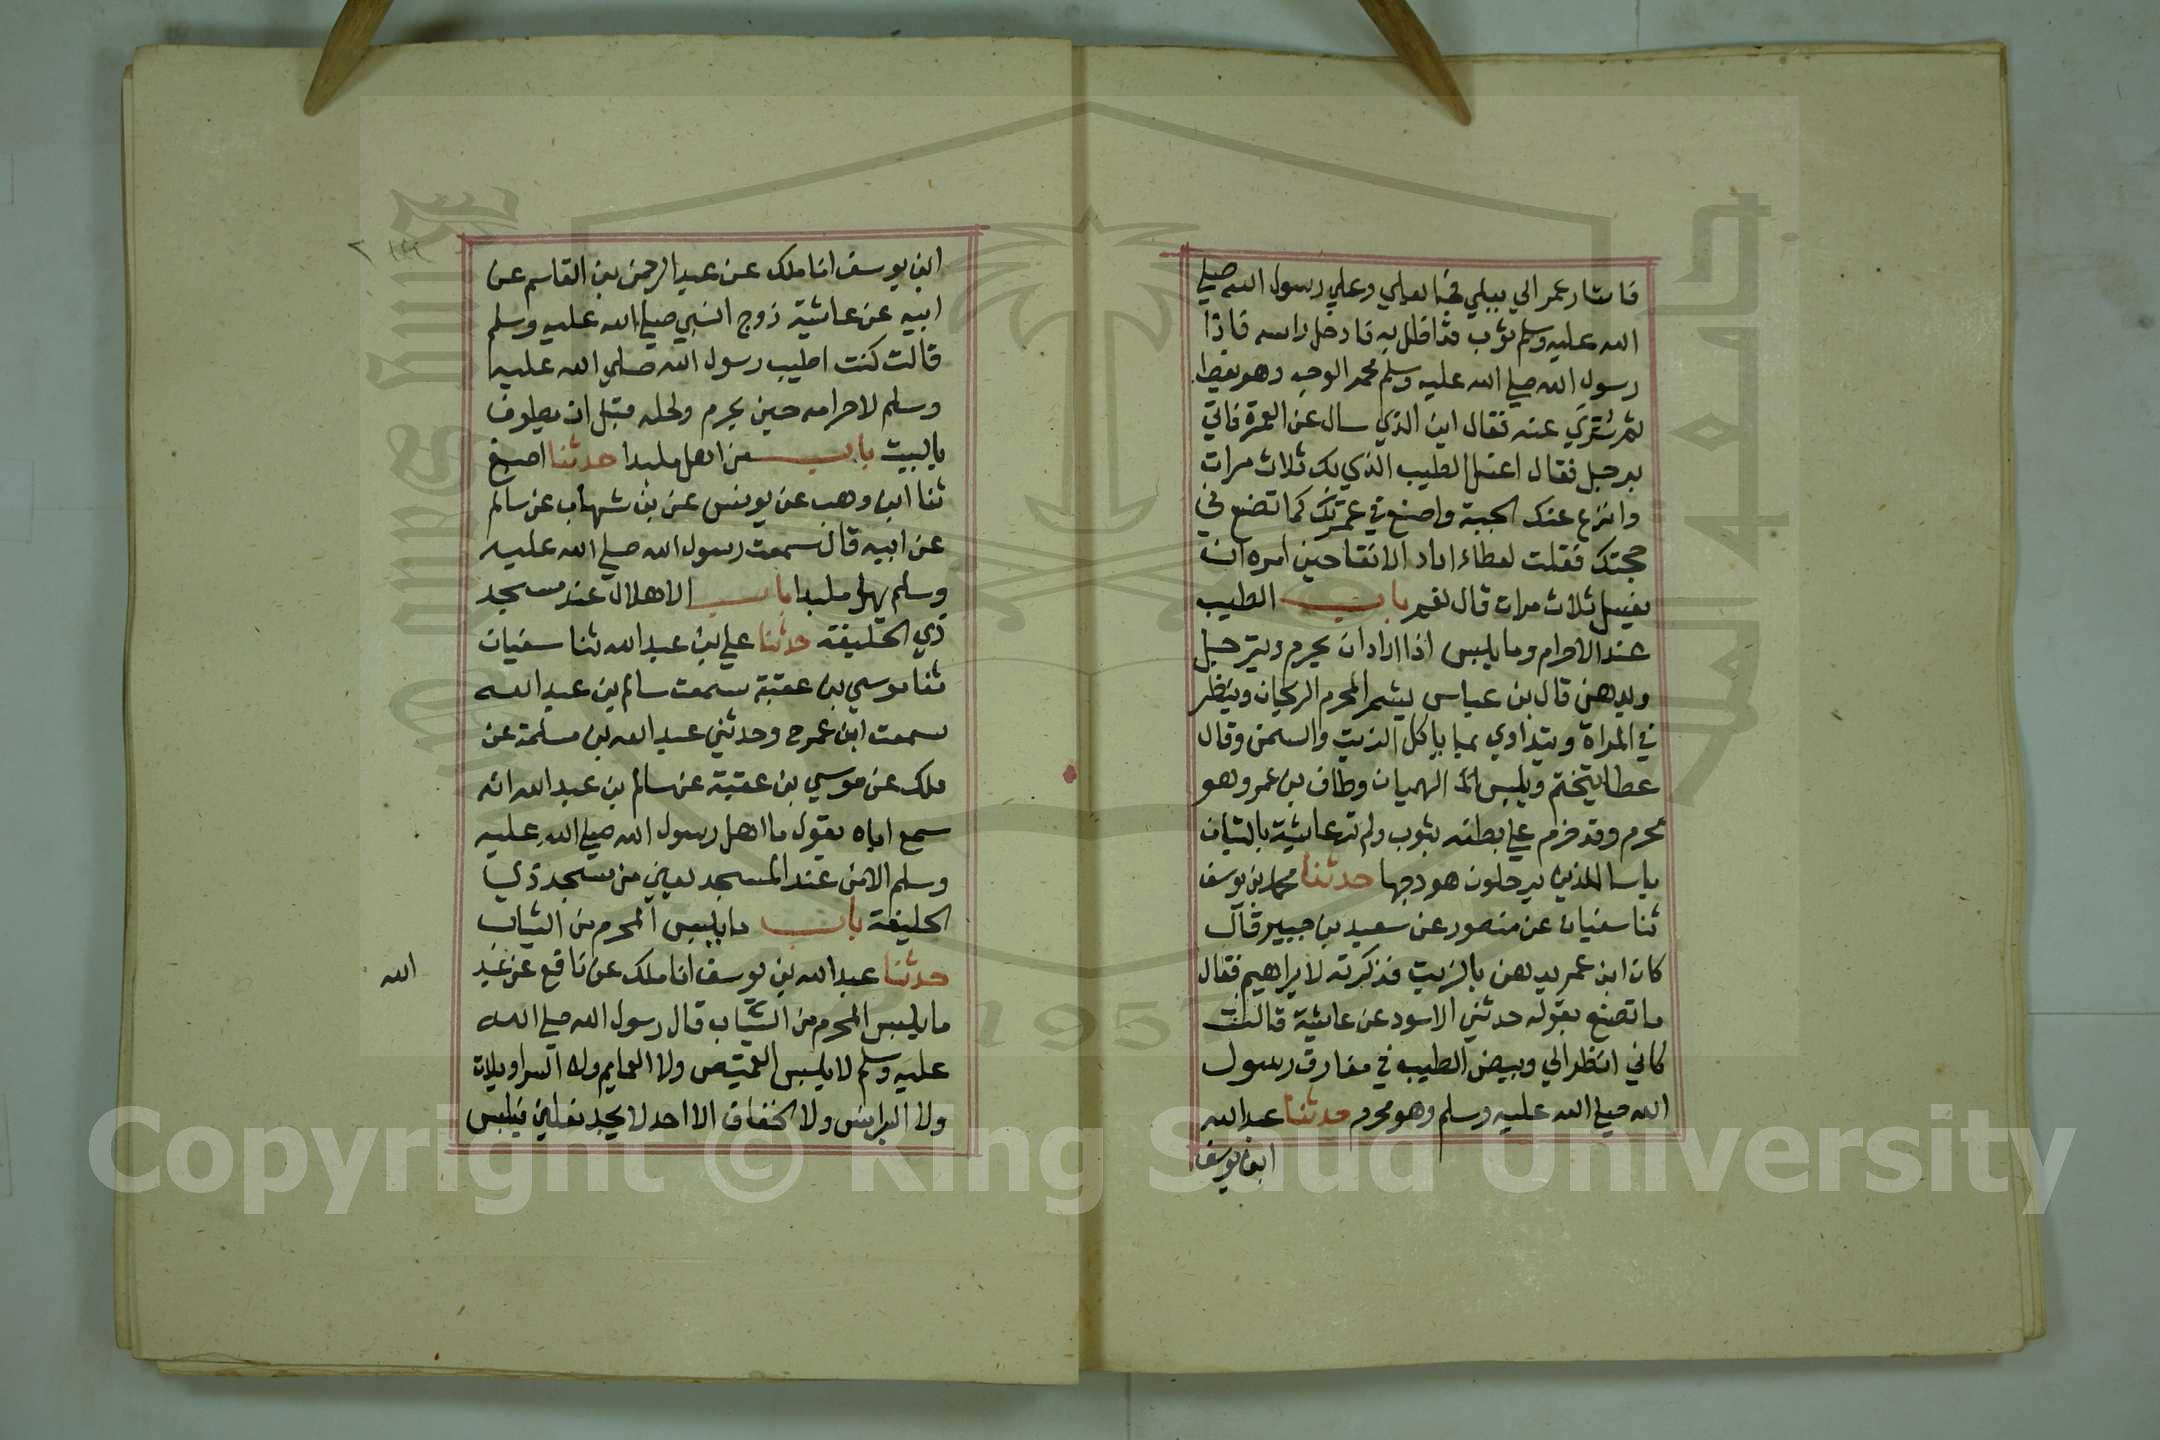 فاشار عمر الي يعلي فجا يعلي وعلي رسول الله صلي
الله عليه وسلم ثوب قد اظل به فادخل راسه فاذا
رسول الله صلي الله عليه وسلم محمر الوجه وهو يغط
ثم سري عنه فقال اين الذي سال عن العمرة فاتي
برجل فقال اغسل الطيب الذي بك ثلاث مرات
وانزع عنك الجبة واصنع في عمرتك كما تصنع في
حجتك فقلت لعطاء اراد الانقا حين امره ان
يغسل ثلاث مرات قال نعم باب الطيب
عند الاحرام وما يلبس اذا اراد ان يحرم ويترجل
ويدهن قال بن عباس يشم المحرم الريحان وينظر
في المراة ويتداوي بما ياكل الزيت والسمن وقال
عطا يتختم ويلبس الهميان وطاف بن عمر وهو
محرم وقد حزم علي بطنه بثوب ولم تر عائشة بالتبان
باسا للذين يرحلون هودجها حدثنا محمد بن يوسف
ثنا سفيان عن منصور عن سعيد بن جبير قال
كان ابن عمر يدهن بالزيت فذكرته لابراهيم فقال
ما تصنع بقوله حدثني الاسود عن عائشة قالت
كاني انظر الي وبيض الطيب في مفارق رسول
الله صلي الله عليه وسلم وهو محرم حدثنا عبد الله
ابن يوسف
ابن يوسف انا ملك عن عبد الرحمن بن القاسم عن
ابيه عن عائشة زوج النبي صلي الله عليه وسلم
قالت كنت اطيب رسول الله صلي الله عليه
وسلم لاحرامه حين يحرم ولحله قبل ان يطوف
بالبيت باب من اهل ملبدا حدثنا اصبغ
ثنا ابن وهب عن يونس عن بن شهاب عن سالم
عن ابيه قال سمعت رسول الله صلي الله عليه
وسلم يهل ملبدا باب الاهلال عند مسجد
ذي الحليفة حدثنا علي بن عبد الله ثنا سفيان
ثنا موسي بن عقبة سمعت سالم بن عبد الله
سمعت ابن عمر ح وحدثني عبد الله بن مسلمة عن
ملك عن موسي بن عقبة عن سالم بن عبد الله انه
سمع اباه يقول ما اهل رسول الله صلي الله عليه
وسلم الا من عند المسجد يعني من مسجد ذي
الحليفة باب ما يلبس المحرم من الثياب
حدثنا عبد الله بن يوسف انا ملك عن نافع عن عبد
الله
ما يلبس المحرم من الثياب قال رسول الله صلي الله
عليه وسلم لا يلبس القميص ولا العمايم ولا السراويلات
ولا البرانس ولا الخفاف الا احد لا يجد نعلين فيلبس
Copyright © King Saud University
1957